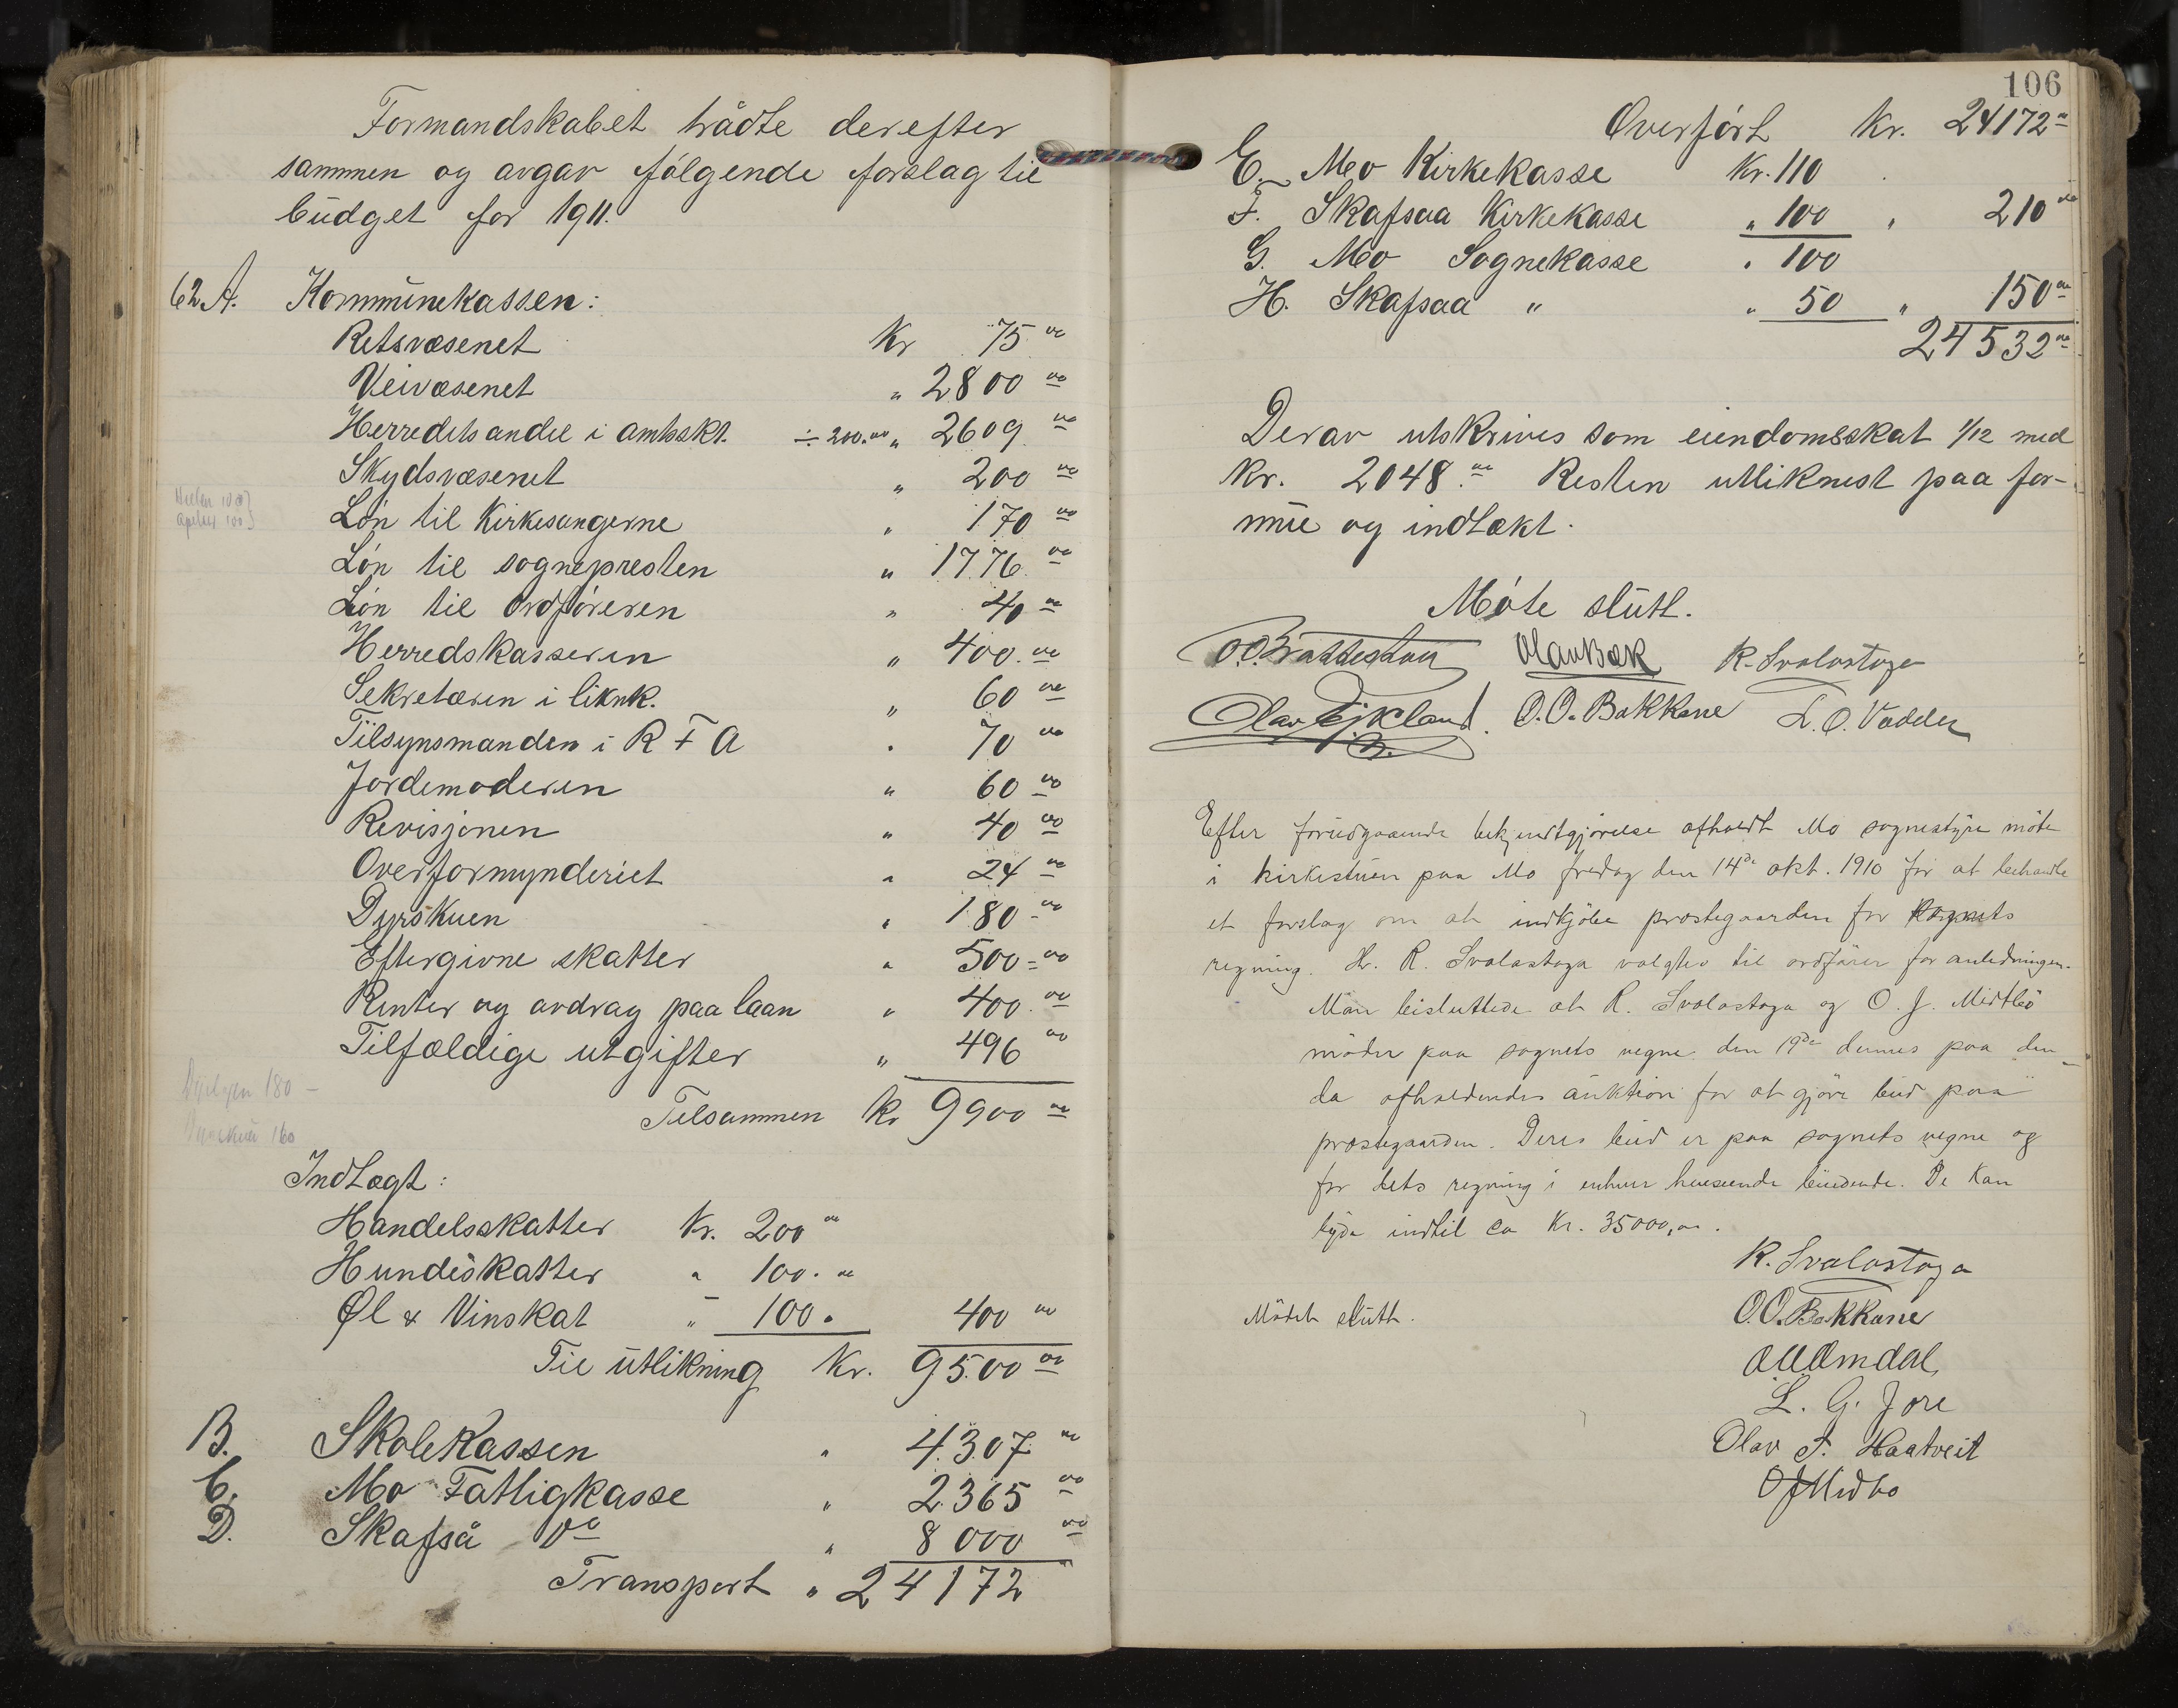 Formandskabet trådte derefter
sammen og avgav følgende forslag til
budget for 1911.
62 A. Kommunekassen:
Retsvæsenet Kr 75 00
Veivæsenet " 2800 00
Herredets andel i amtsskt. ÷ 200.00 " 2609 00
Skydsvæsenet " 200 00
Løn til Kirkesangerne " 170 00
Løn til sognepresten " 1776 00
Løn til Ordføreren " 40 00
Herredskasseren " 400.00
Sekretæren i liknk. " 60 00
Tilsynsmanden i R F A " 70 00
Jordemoderen " 60 00
Revisjonen " 40 00
Overformynderiet " 24 00
Dyrskuen " 180 00
Eftergivne skatter " 500 00
Renter og avdrag paa laan " 400.00
Tilfældige utgifter " 496 00
180 -
160
Tilsammen Kr 9900 00
Indtægt:
Handelsskatter Kr. 200 00
Hundeskatter " 100.00
Øl & Vinskat " 100. 400 00
Til utlikning Kr. 9500 00
B. Skolekassen " 4307 00
C. Mo Fattigkasse " 2365 00
D. Skafså Do " 8000 00
Transport " 24172
106
Overført Kr. 24172 00
E. Mo Kirkekasse Kr. 110
F. Skafsaa Kirkekasse " 100 " 210 00
G. Mo Sognekasse " 100
H. Skafsaa " " 50 " 150 00
24532 00
Derav utskrives som eiendomsskat 1/12 med
Kr. 2048.00 Resten utliknest paa for-
mue og indtækt.
Møte slutt.
O.O. Brattestaa Olav Bæk R. Svalastoga
Olav Eikland. O.O. Bakkane L.O. Vadder
Efter forudgaaende bekjendtgjørelse afholdt Mo sognestyre møte
i kirkestuen paa Mo fredag den 14de okt. 1910 for at behandle
et forslag om at indkjøbe præstegaarden for sognets
regning. Hr. R. Svalastoga valgtes til ordfører for anledningen.
Man besluttede at R. Svalastoga og O. J. Midtbö
möder paa sognets vegne den 19de dennes paa den
da afholdendes auktion for at gjöre bud paa
præstegaarden. Deres bud er paa sognets vegne og
for dets regning i enhver henseende bindende. De kan
byde indtil ca Kr. 35000,00.
R. Svalastoga
Mödet slutt. O.O. Bakkane
Omdal
L. G. Jore
Olav T. Haatveit
O J Midbo